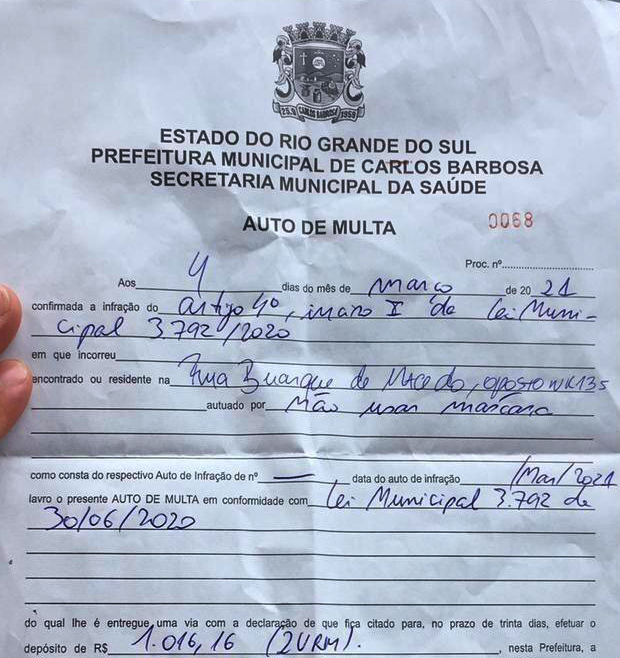 25.9 CARLOS BARBOSA 1959
ESTADO DO RIO GRANDE DO SUL
PREFEITURA MUNICIPAL DE CARLOS BARBOSA
SECRETARIA MUNICIPAL DA SAÚDE
AUTO DE MULTA 0068
Proc. nº
Aos 4 dias do mês de março de 20 21
confirmada a infração do artigo 4º, inciso I da Lei Muni-
cipal 3.792/2020
em que incorreu
encontrado ou residente na Rua Buarque de Macedo, oposto
autuado por não usar máscara
como consta do respectivo Auto de Infração de nº — data do auto de infração /Mar/2021
lavro o presente AUTO DE MULTA em conformidade com Lei Municipal 3.792 de
30/06/2020
do qual lhe é entregue uma via com a declaração de que fica citado para, no prazo de trinta dias, efetuar o
depósito de R$ 1.016,16 (2URM). , nesta Prefeitura, a